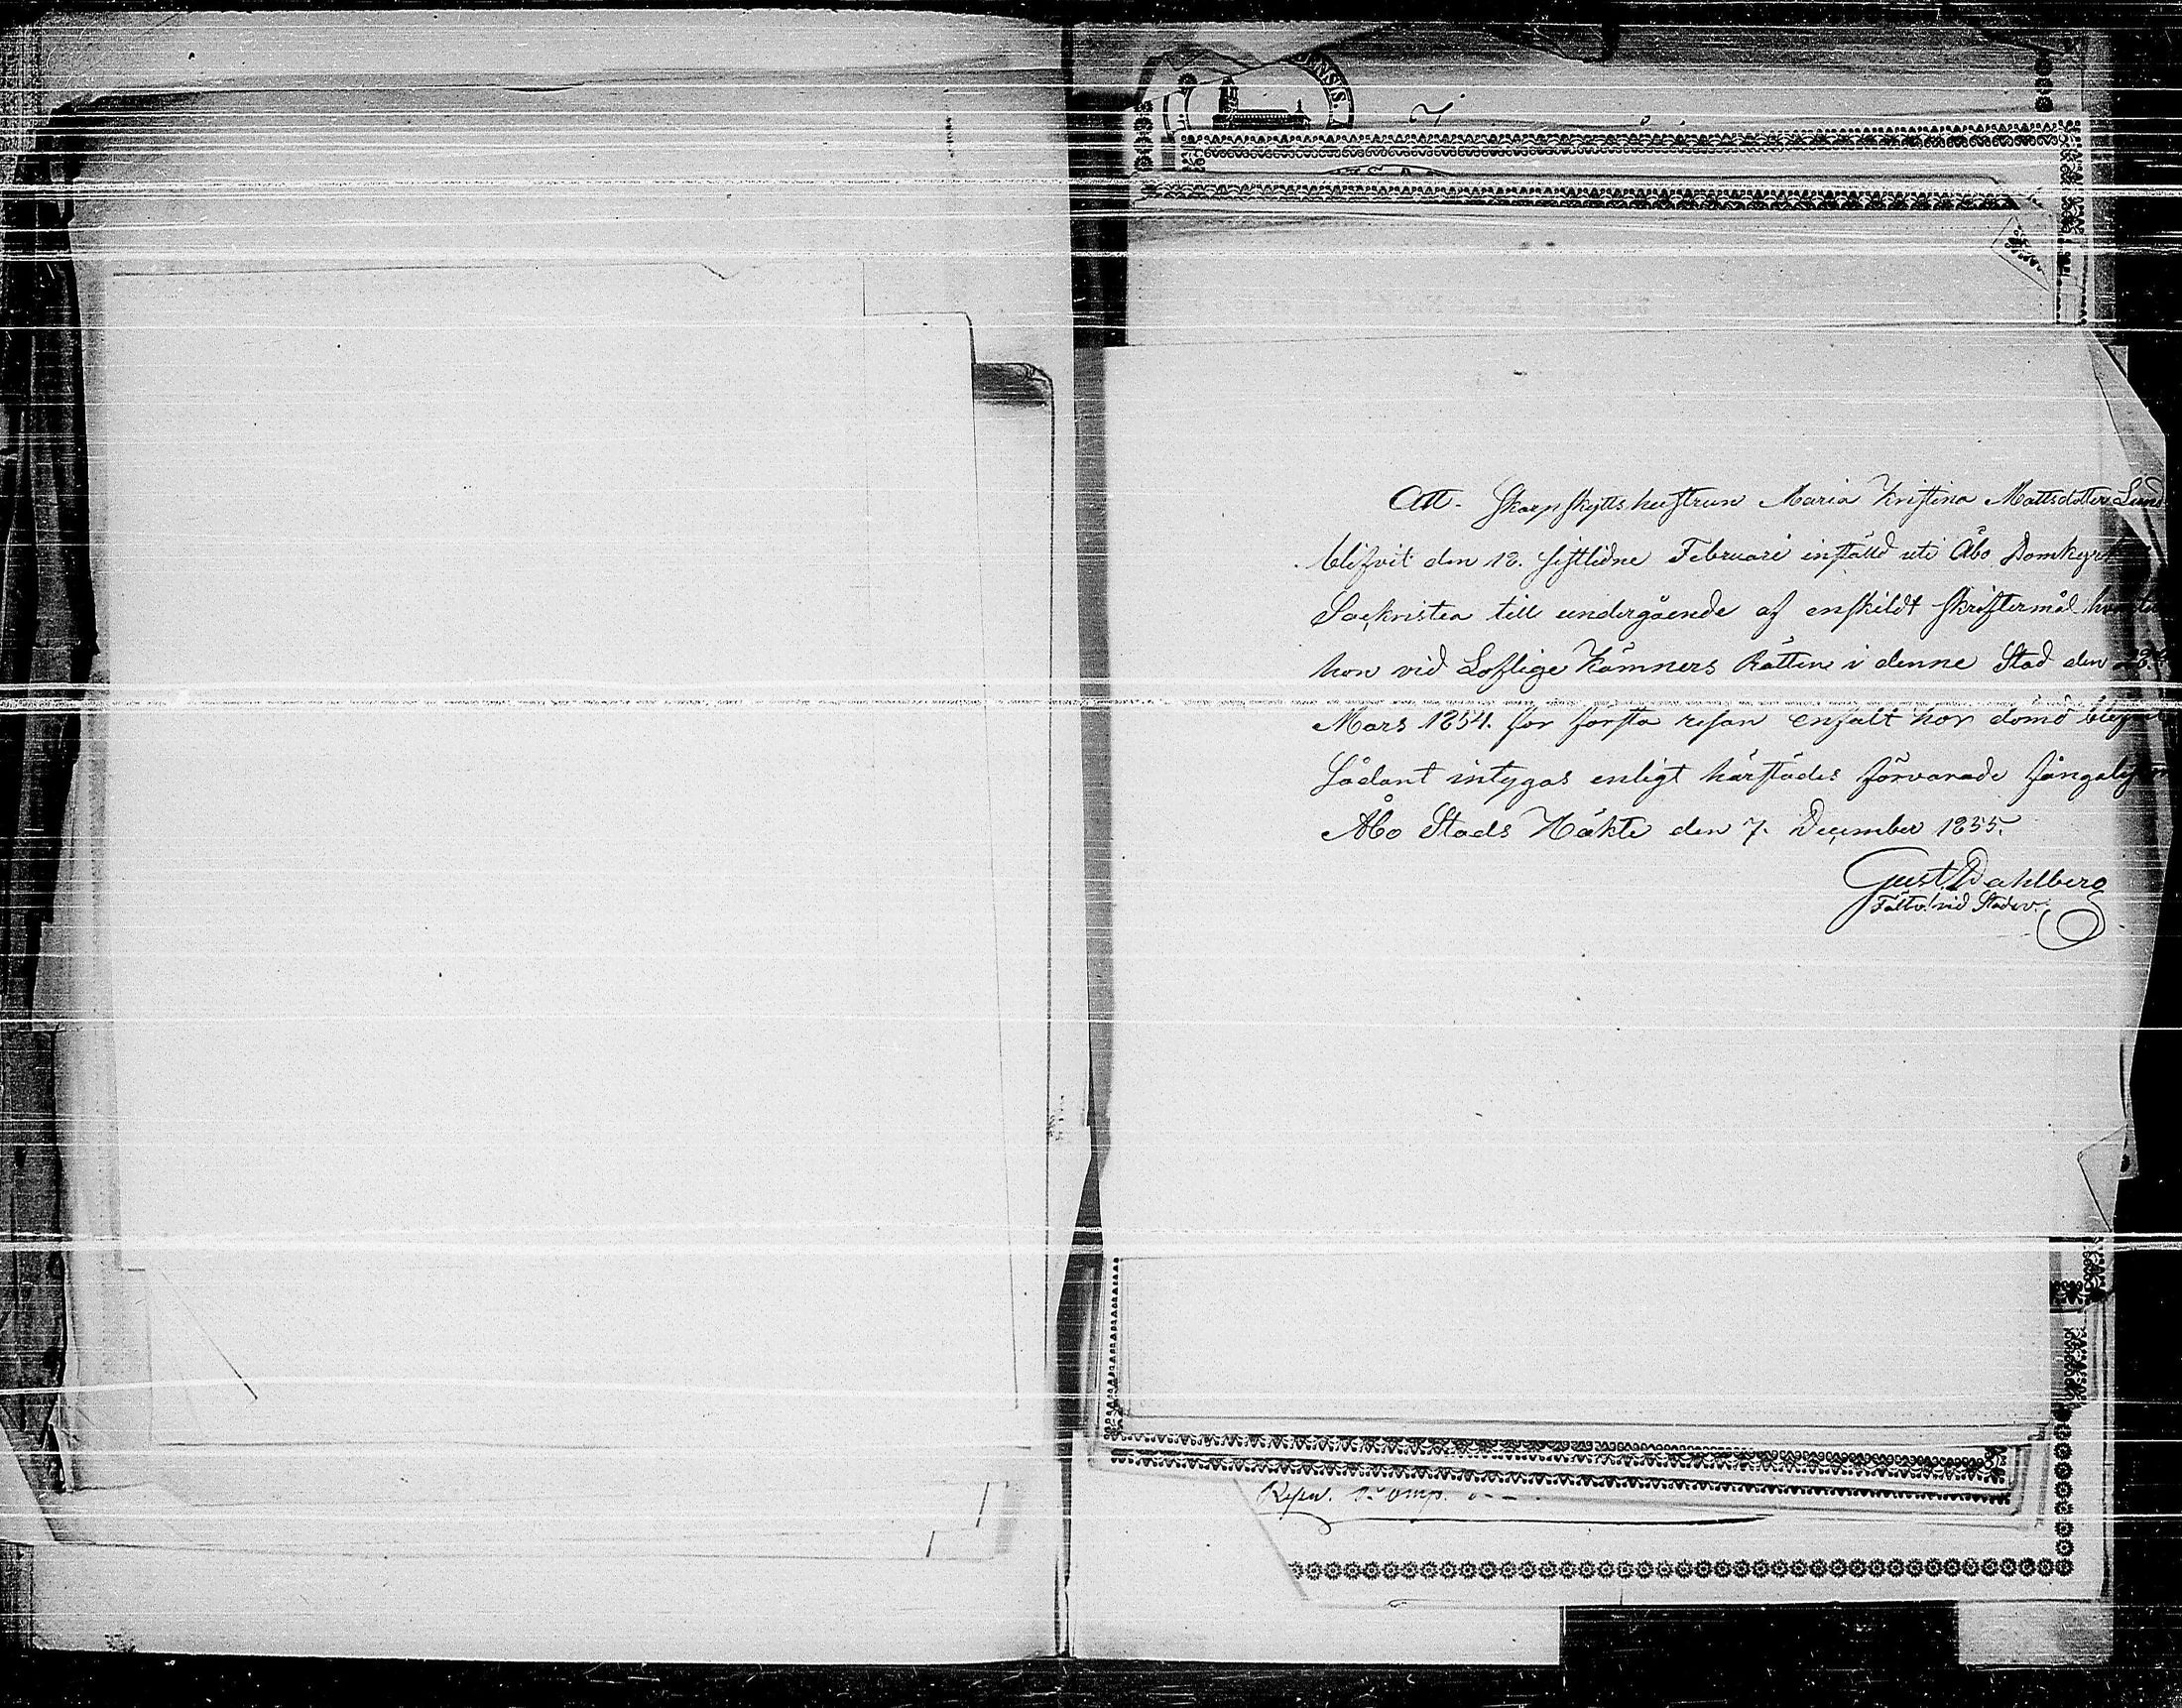 Att Skarpskyttshustrun Maria Kristina Mattsdotter Lund
blifvit den 12. sistlidne Februari inställd uti Åbo Domkyrk
Sackristea till undergående af enskildt skriftermål hvartill
hon vid Loflige Kämners Rätten i denne Stad den 28
Mars 1854. för första resan enfalt hor dömd blifvit
Sådant intygas enligt härstädes förvarade fångalistan
Åbo Stads Häkte den 7. December 1855.
Gust. Dahlberg
vid